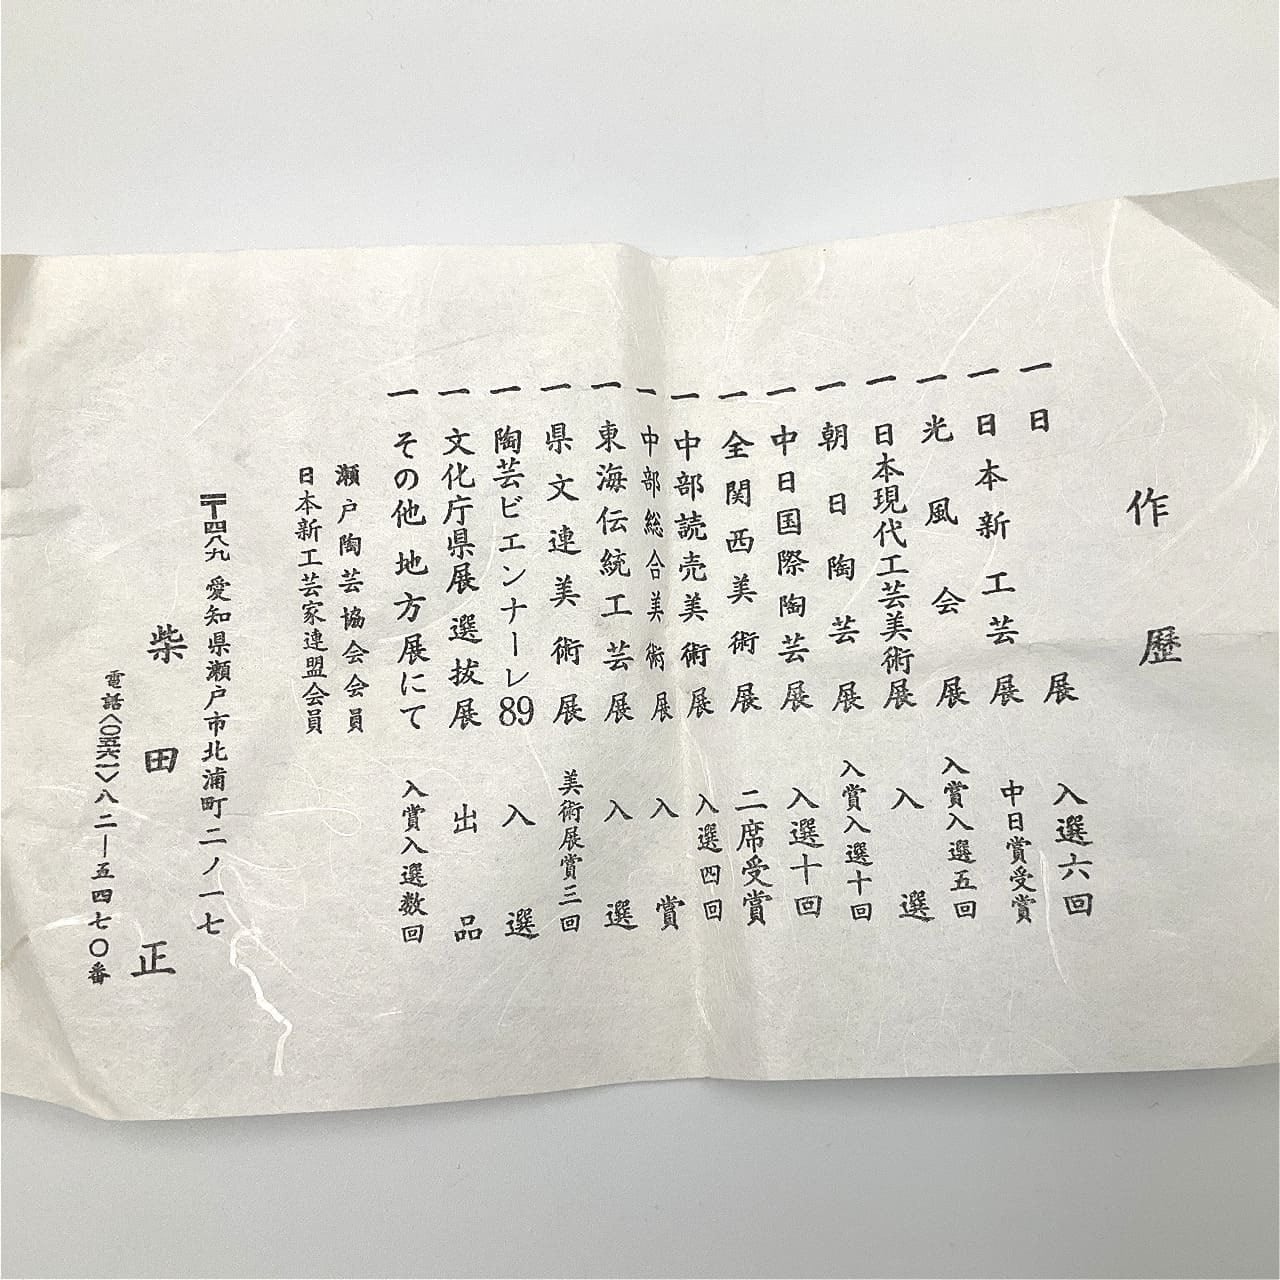 作歴
一 日展 入選六回
一 日本新工芸展 中日賞受賞
一 光風会展 入賞入選五回
一 日本現代工芸美術展 入選
一 朝日陶芸展 入賞入選十回
一 中日国際陶芸展 入選十回
一 全関西美術展 二席受賞
一 中部読売美術展 入選四回
一 中部総合美術展 入賞
一 東海伝統工芸展 入選
一 県文連美術展 美術展賞三回
一 陶芸ビエンナーレ89 入選
一 文化庁県展選抜展 出品
一 その他地方展にて 入賞入選数回
瀬戸陶芸協会会員
日本新工芸家連盟会員
〒四八九 愛知県瀬戸市北浦町二ノ一七
柴田正
電話〈〇五六一〉八二―五四七〇番